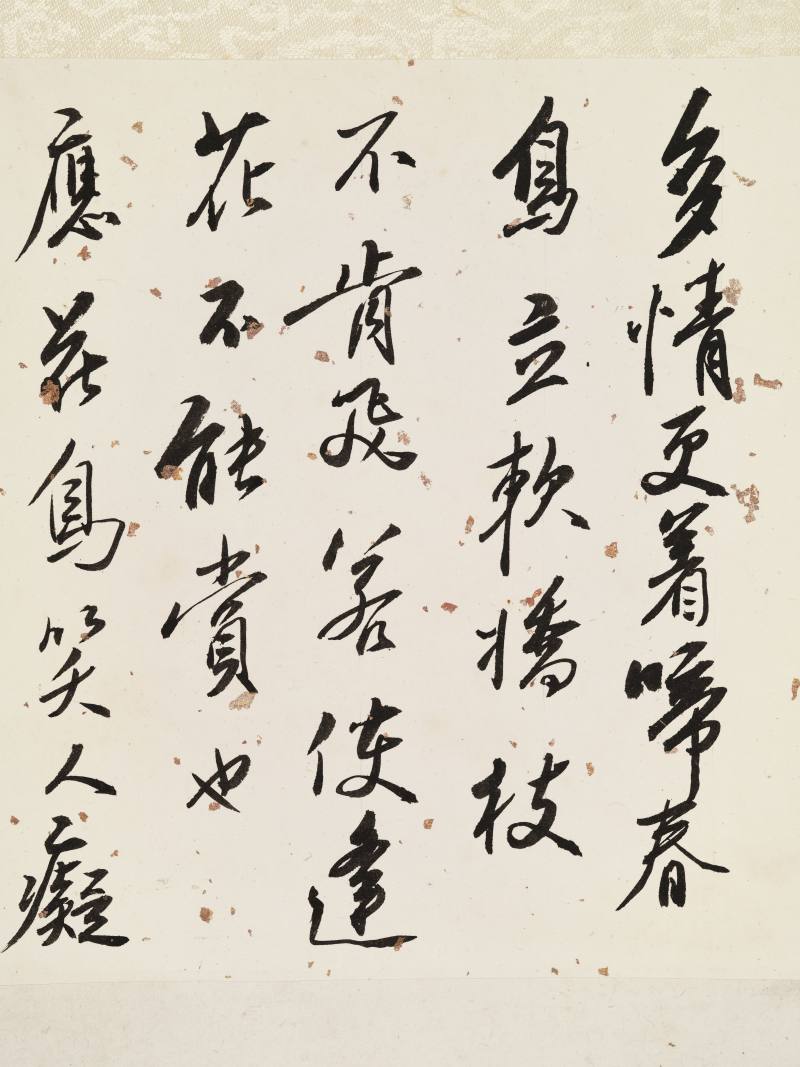 多情更着啼春
鳥立軟嬌枝
不肯飛若使逢
花不能賞也
應花鳥笑人癡